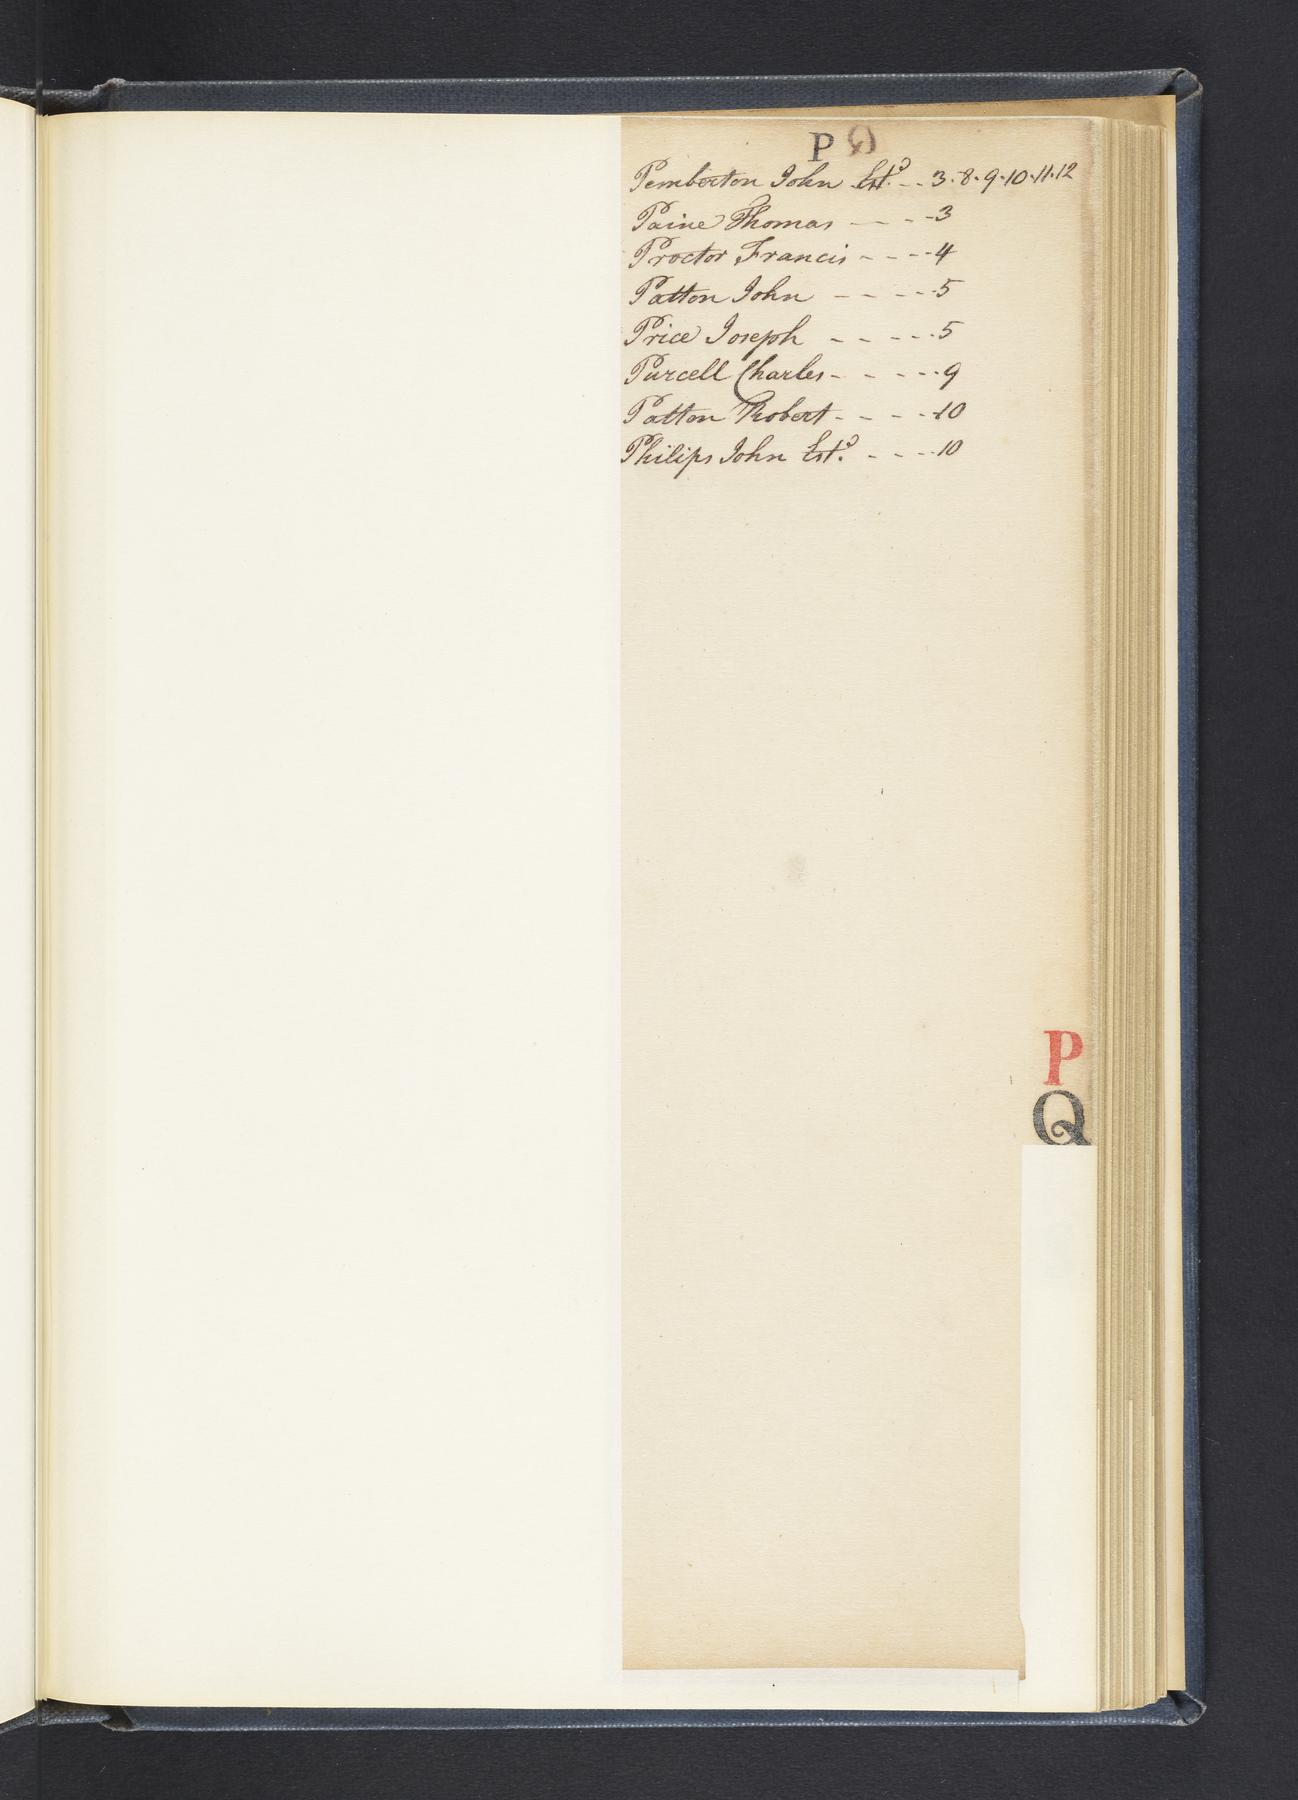 P Q
Pemberton John Est.ᵈ - - 3. 8. 9. 10. 11. 12
Paine Thomas - - - - 3
Proctor Francis - - - - 4
Patton John - - - - - 5
Price Joseph - - - - - 5
Purcell Charles - - - - - 9
Patton Robert - - - - - 10
Philips John Est.ᵈ - - - - 10
P
Q